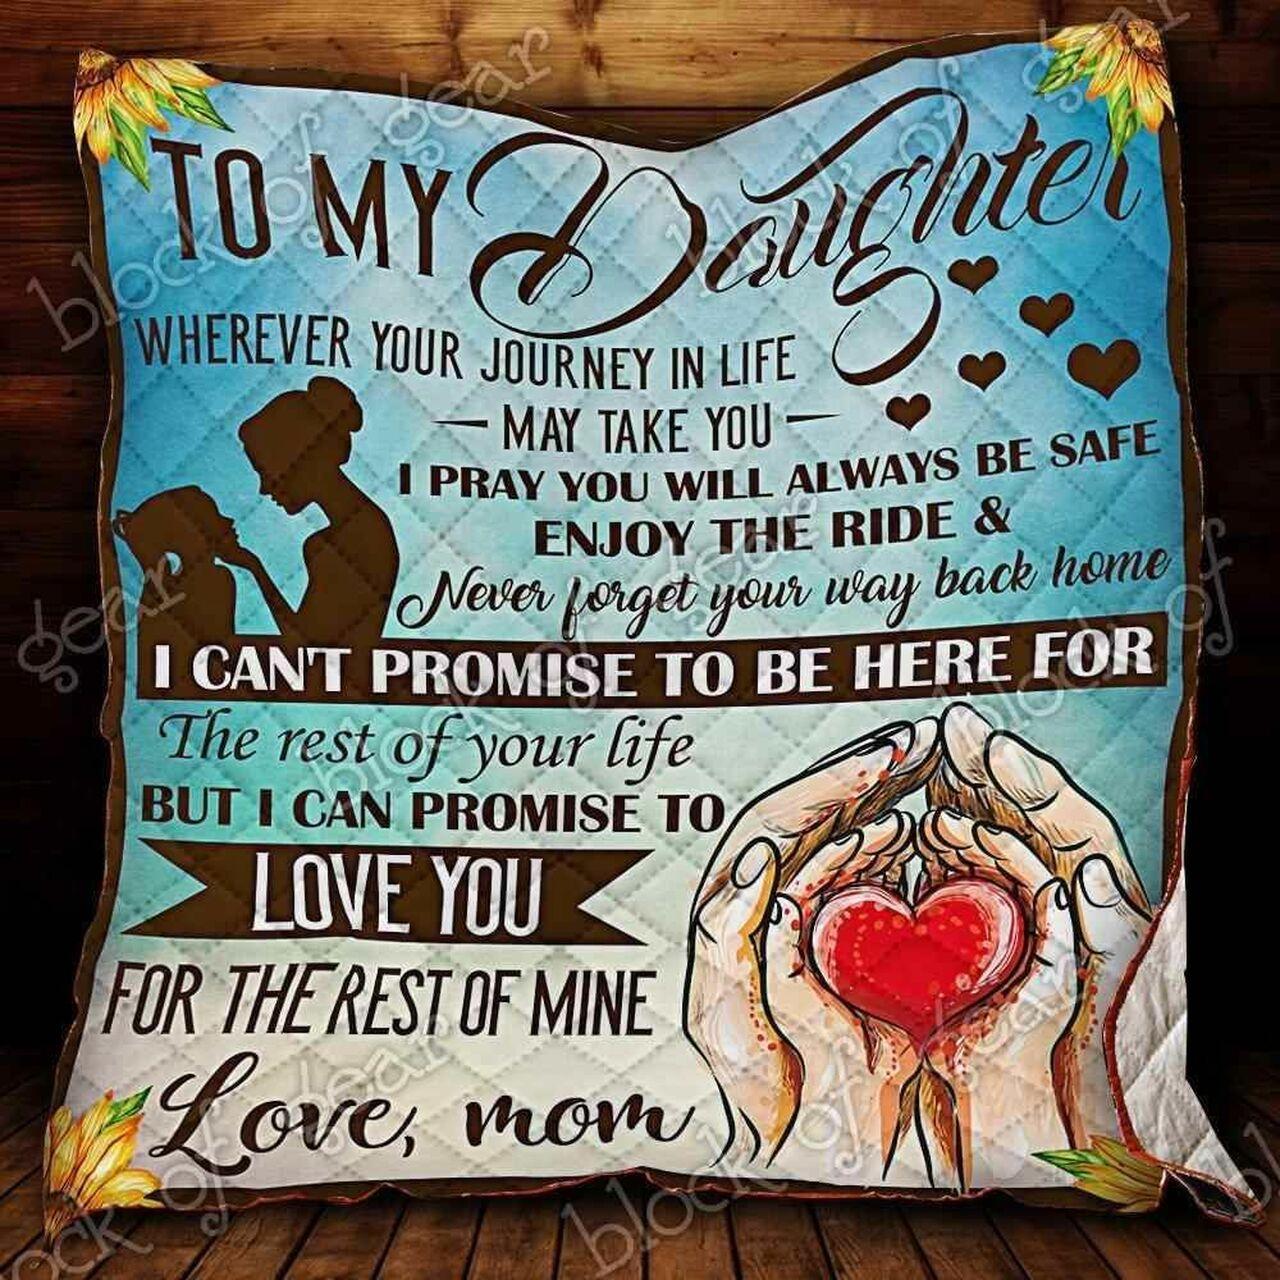 TO MY Daughter
WHEREVER YOUR JOURNEY IN LIFE
MAY TAKE YOU
I PRAY YOU WILL ALWAYS BE SAFE
ENJOY THE RIDE &
Never forget your way back home
I CAN'T PROMISE TO BE HERE FOR
The rest of your life
BUT I CAN PROMISE TO
LOVE YOU
FOR THE REST OF MINE
Love, mom
block of gear
block of gear
block of gear
block of gear
block of gear